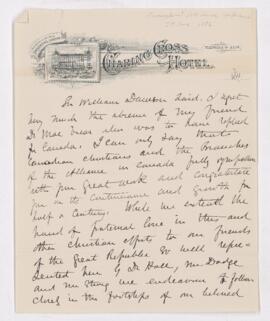 Charing Cross
Hotel.
Sir William Dawson said. I regret
very much the absence of my friend
Dr Mac Vicar who was to have replied
for Canada. I can only say that
Canadian Christians and the branches
of the Alliance in Canada fully sympathise
with your great work and congratulate
you on its continuance and growth for
half a century. While we extend the
hand of fraternal love in this and
other Christian efforts to our friends
of the Great Republic so well repre-
sented here by Dr Hall, Mr Dodge
and Mr Strong we endeavour to follow
closely in the footsteps of our beloved